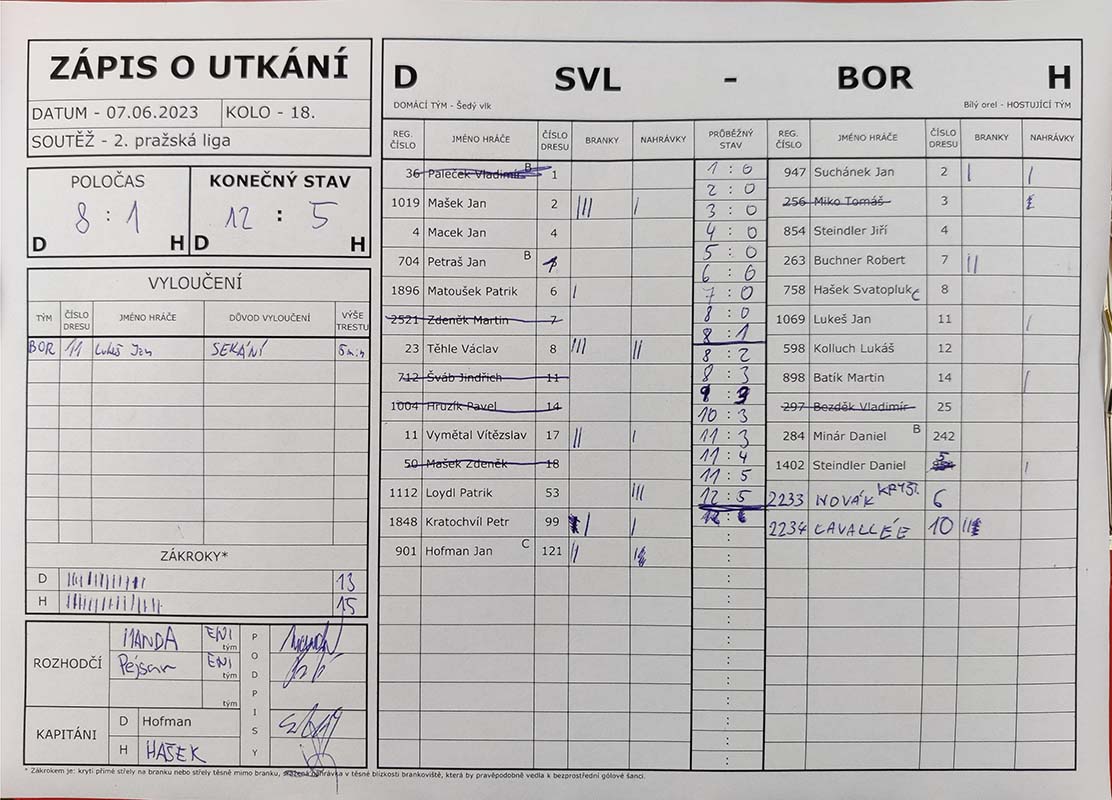 ZÁPIS O UTKÁNÍ
DATUM - 07.06.2023 KOLO - 18.
SOUTĚŽ - 2. pražská liga
POLOČAS KONEČNÝ STAV
8 : 1 12 : 5
D H D H
VYLOUČENÍ
TÝM ČÍSLO DRESU JMÉNO HRÁČE DŮVOD VYLOUČENÍ VÝŠE TRESTU
BOR 11 Lukeš Jan SEKÁNÍ 5min
ZÁKROKY*
D 13
H 15
ROZHODČÍ MANDA ENI tým
Pejsar ENI tým
tým
PODPISY
KAPITÁNI D Hofman
H HAŠEK
D SVL - BOR H
DOMÁCÍ TÝM - Šedý vlk Bílý orel - HOSTUJÍCÍ TÝM
REG. ČÍSLO JMÉNO HRÁČE ČÍSLO DRESU BRANKY NAHRÁVKY PRŮBĚŽNÝ STAV REG. ČÍSLO JMÉNO HRÁČE ČÍSLO DRESU BRANKY NAHRÁVKY
36 Paleček Vladimír B 1
1019 Mašek Jan 2 III I
4 Macek Jan 4
704 Petraš Jan B
1896 Matoušek Patrik 6 I
2521 Zdeněk Martin 7
23 Těhle Václav 8 III II
712 Šváb Jindřich 11
1004 Hruzík Pavel 14
11 Vymětal Vítězslav 17 II I
50 Mašek Zdeněk 18
1112 Loydl Patrik 53 III
1848 Kratochvíl Petr 99 I I
901 Hofman Jan C 121 II I
1 : 0
2 : 0
3 : 0
4 : 0
5 : 0
6 : 0
7 : 0
8 : 0
8 : 1
8 : 2
8 : 3
9 : 3
10 : 3
11 : 3
11 : 4
11 : 5
12 : 5
947 Suchánek Jan 2 I I
256 Miko Tomáš 3
854 Steindler Jiří 4
263 Buchner Robert 7 II
758 Hašek Svatopluk C 8
1069 Lukeš Jan 11 I
598 Kolluch Lukáš 12
898 Batík Martin 14 I
297 Bezděk Vladimír 25
284 Minár Daniel B 242
1402 Steindler Daniel 5 I
2233 NOVÁK KRYŠT. 6
2234 LAVALLÉE 10 II
* Zákrokem je: krytí přímé střely na branku nebo střely těsně mimo branku, sražená nahrávka v těsné blízkosti brankoviště, která by pravěpodobně vedla k bezprostřední gólové šanci.